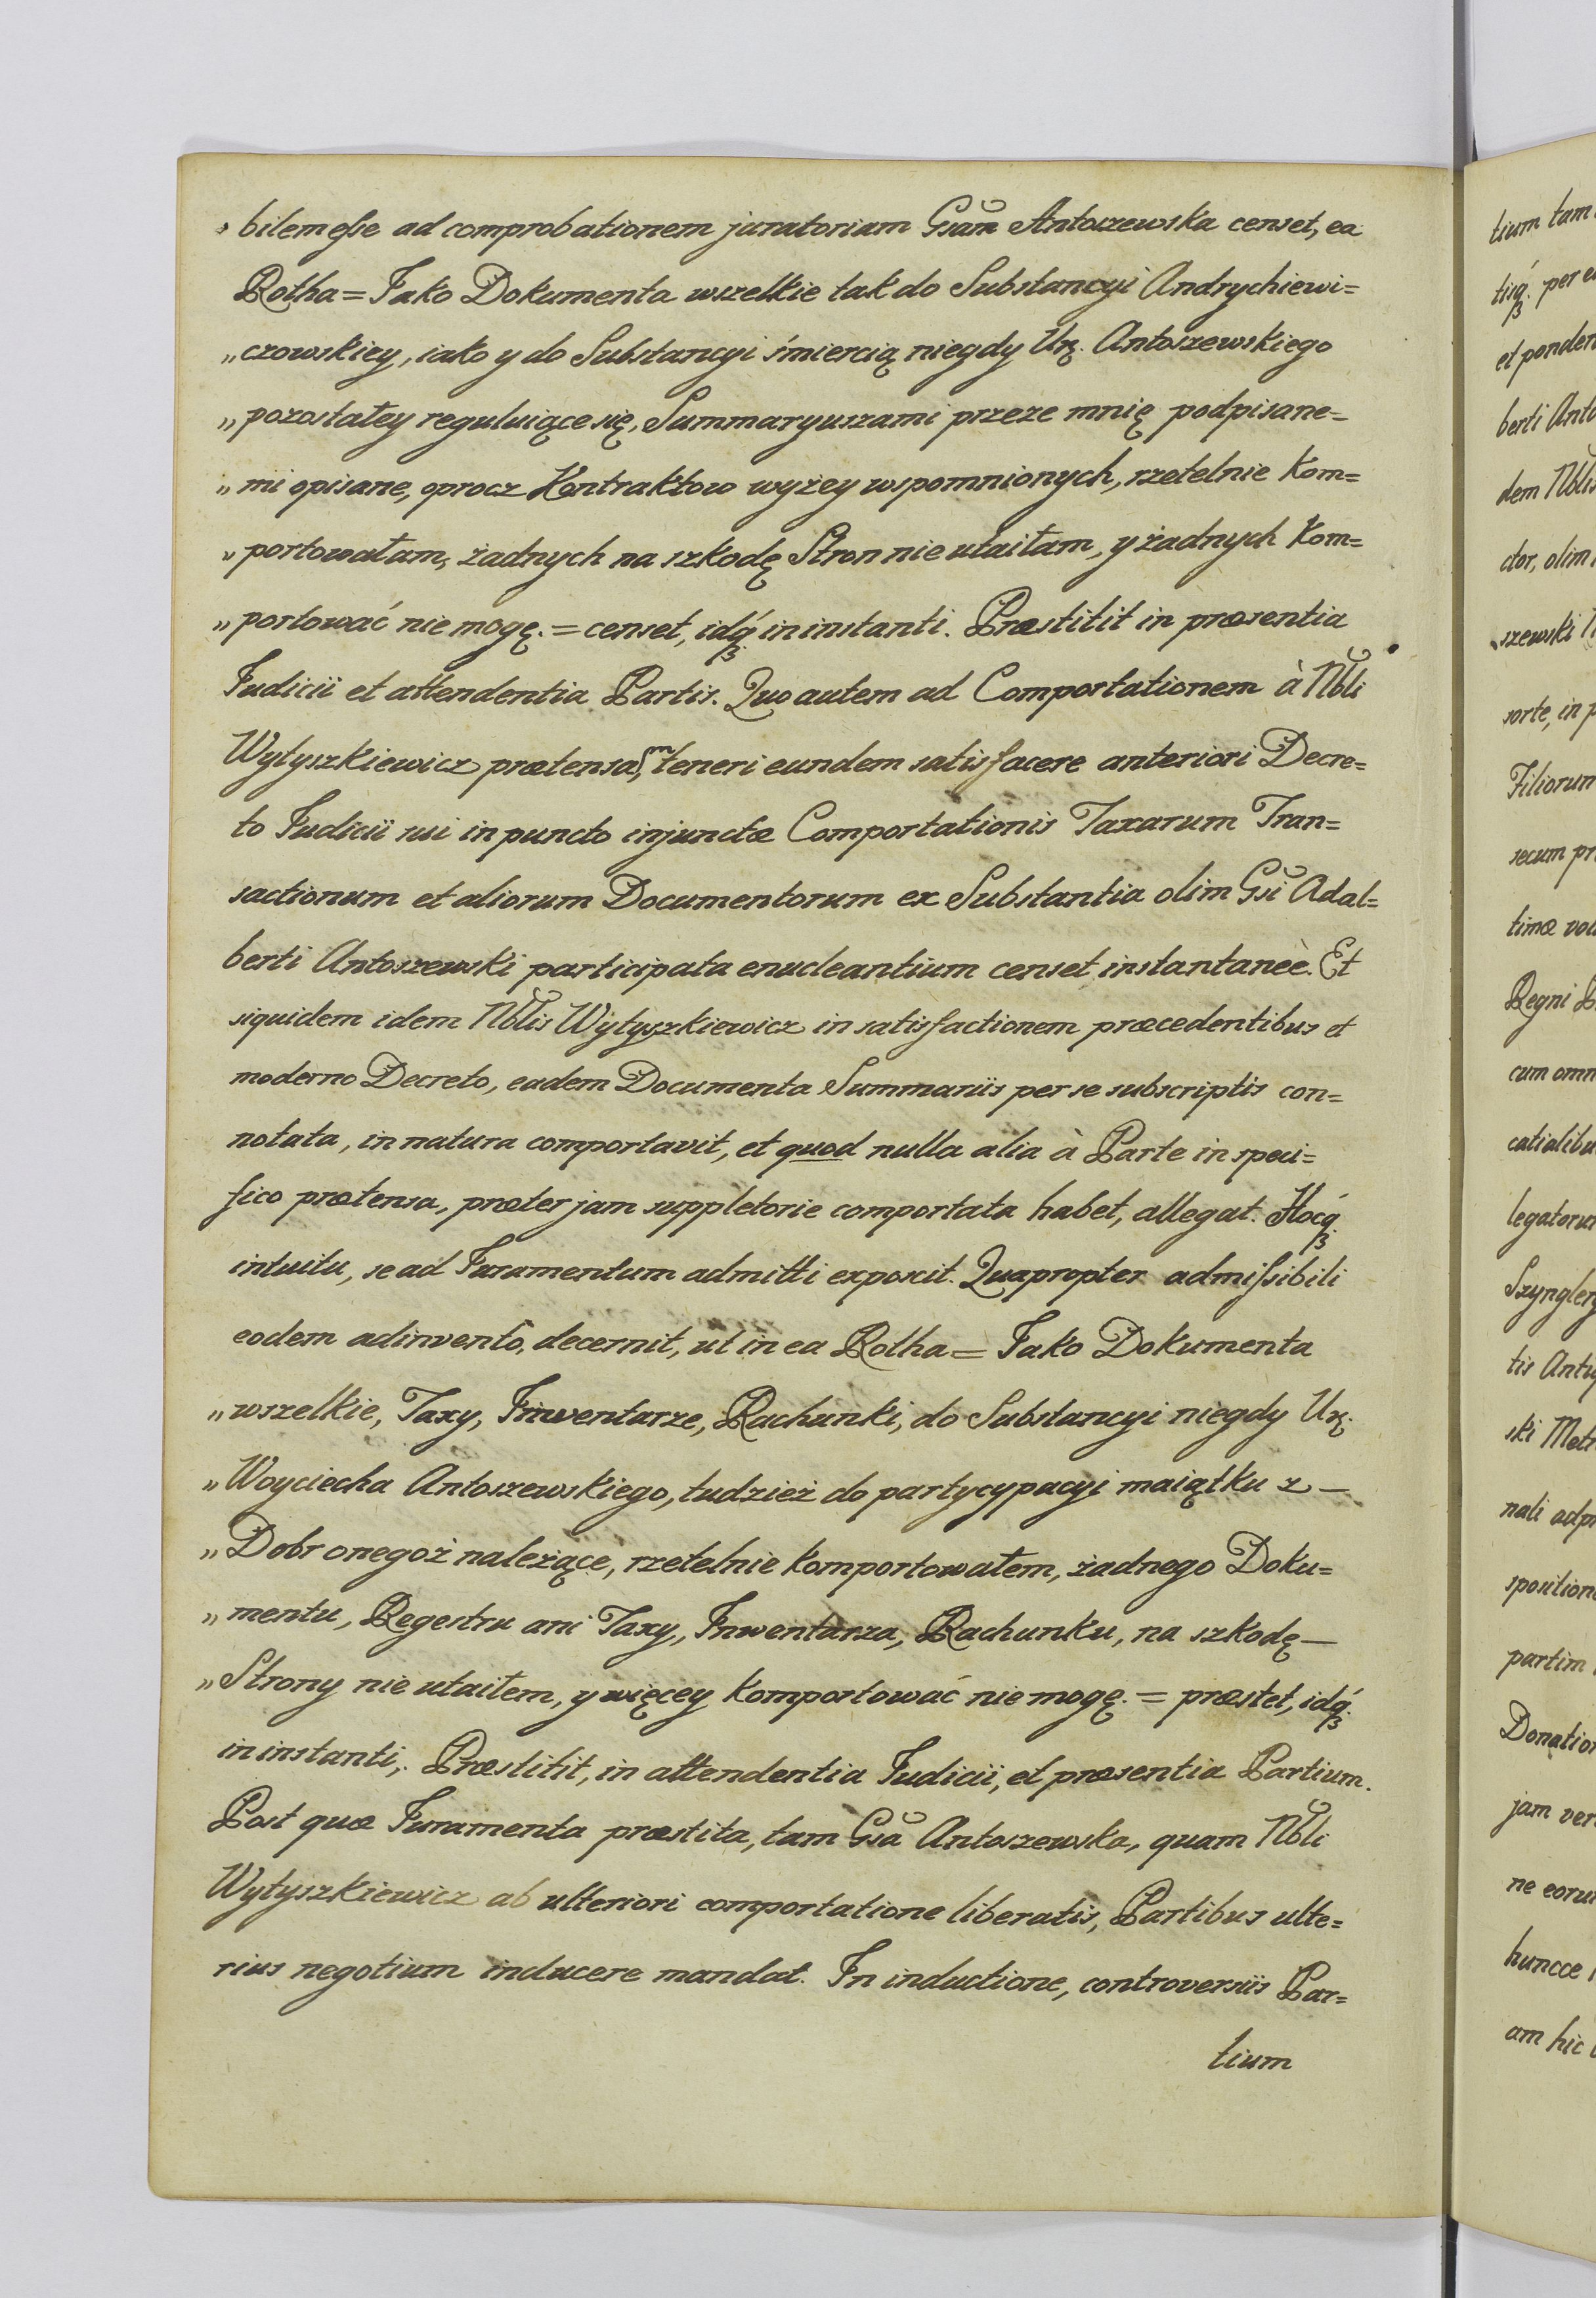 „ bilem esse ad comprobationem juratoriam Gsam Antoszewska censet, ea
Rotha = Jako Dokumenta wszelkie tak do Substancyi Andrychiewi=
„ czowskiey, iako y do Substancyi śmiercią niegdy Ur. Antoszewskiego
„ pozostałey reguluiące się, Summaryuszami przeze mnię podpisane=
„ mi opisane, oprocz Kontraktow wyżey wspomnionych, rzetelnie kom=
„ portowałam, żadnych na szkodę Stron nie utaiłam, y żadnych kom=
„ portować nie mogę. = censet, idq́ꝫ in instanti. Præstitit in præsentia
Judicii et attendentia Partis. Quo autem ad Comportationem à Nbli
Wytyszkiewicz prætensam, teneri eundem satisfacere anteriori Decre=
to Judicii sui in puncto injunctæ Comportationis Taxarum Tran=
sactionum et aliorum Documentorum ex Substantia olim Gsi Adal=
berti Antoszewski participata enucleantium censet instantaneè. Et
siquidem idem Nblis Wytyszkiewicz in satisfactionem præcedentibus et
moderno Decreto, eadem Documenta Summariis per se subscriptis con=
notata, in natura comportavit, et quod nulla alia à Parte in speci=
fico prætensa, præter jam suppletorie comportata habet, allegat. Hocq́ꝫ
intuitu, se ad Juramentum admitti exposcit. Quapropter admissibili
eodem adinventô, decernit, ut in ea Rotha = Jako Dokumenta
„ wszelkie, Taxy, Inwentarze, Rachunki, do Substancyi niegdy Ur.
„ Woyciecha Antoszewskiego, tudzież do partycypacyi maiątku z —
„ Dobr onegoż należące, rzetelnie komportowałem, żadnego Doku=
„ mentu, Regestru ani Taxy, Inwentarza, Rachunku, na szkodę —
„ Strony nie utaiłem, y więcey komportować nie mogę. = præstet, idq́ꝫ
in instanti,. Præstitit, in attendentia Judicii, et præsentia Partium.
Post quæ Juramenta præstita, tam Gsa Antoszewska, quam Nbli
Wytyszkiewicz ab ulteriori comportatione liberatis, Partibus ulte=
rius negotium inducere mandat. In inductione, controversiis Par=
tium
tium tam
tisq́ꝫ per e
et ponder
berti Anto
dem Nblis
ctor, olim
szewski
sorte, in p
Filiorum
secum pr
timæ vol
Regni
cum omn
catialibu
legatorum
Szyngler
tis Anty
ski Met
nali adp
sposition
partim
Donation
jam ver
ne eoru
huncce
am hic